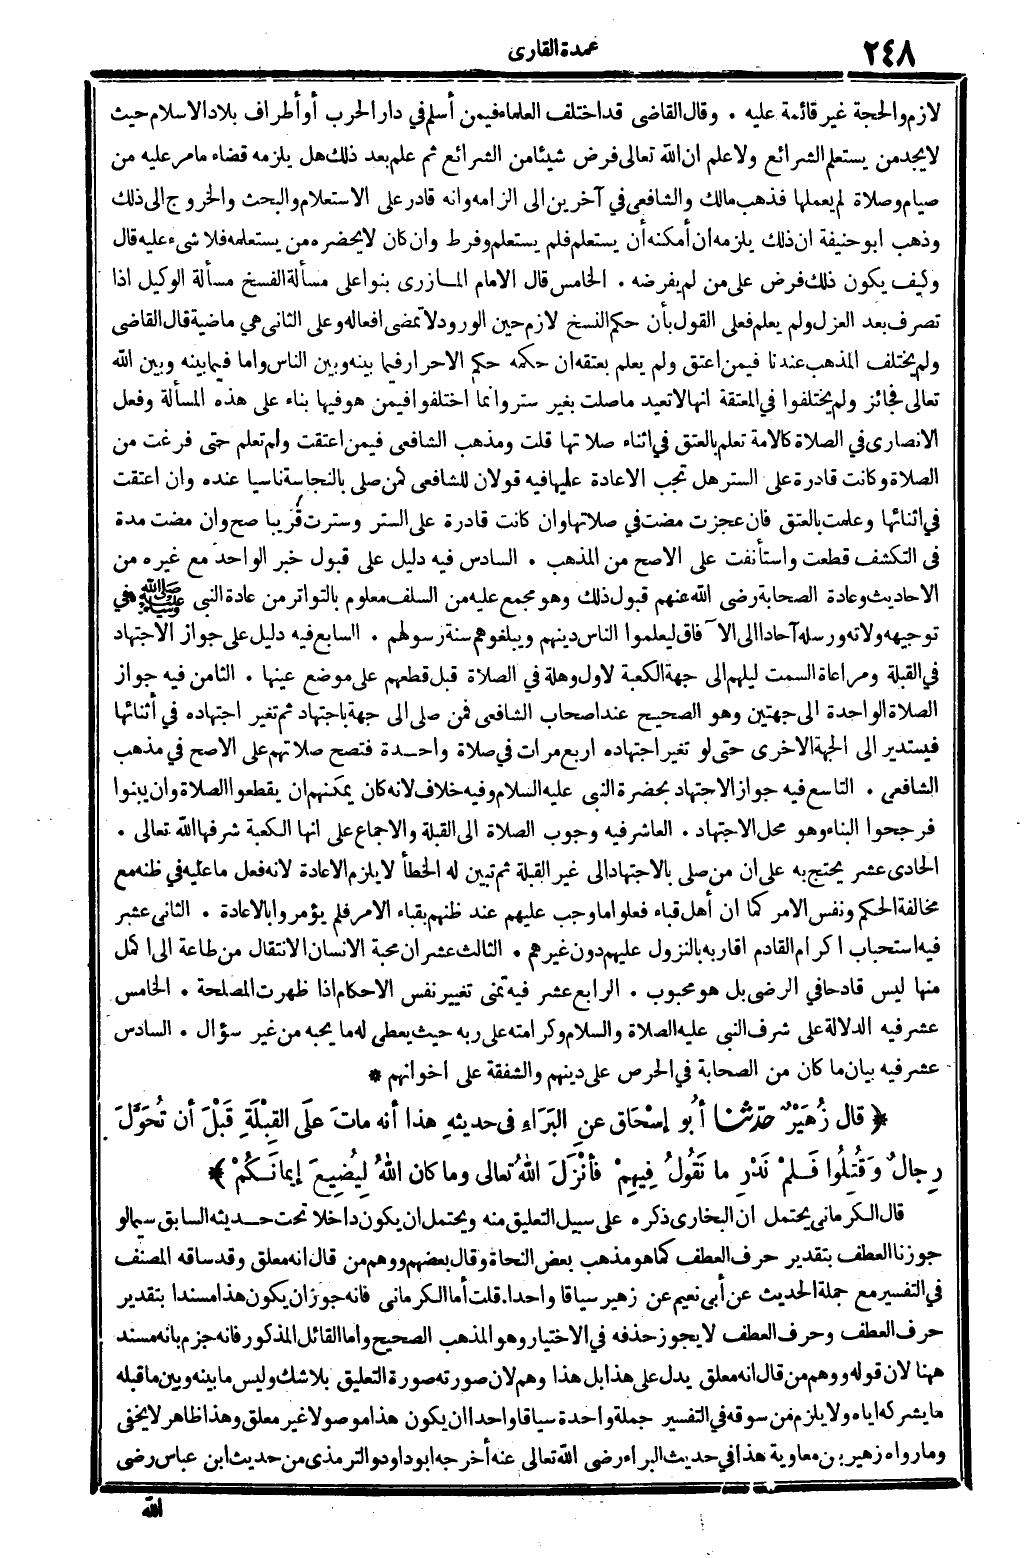 ٢٤٨
عمدة القارى
لازم والحجة غير قائمة عليه . وقال القاضى قد اختلف العلماء فيمن أسلم في دار الحرب أو أطراف بلاد الاسلام حيث
لا يجد من يستعلم الشرائع ولا علم ان الله تعالى فرض شيئا من الشرائع ثم علم بعد ذلك هل يلزمه قضاء ما مر عليه من
صيام وصلاة لم يعملها فذهب مالك والشافعى في آخرين الى الزامه وانه قادر على الاستعلام والبحث والخروج الى ذلك
وذهب ابو حنيفة ان ذلك يلزمه ان أمكنه أن يستعلم فلم يستعلم وفرط وان كان لا يحضره من يستعلمه فلا شىء عليه قال
وكيف يكون ذلك فرض على من لم يفرضه . الخامس قال الامام المازرى بنوا على مسألة الفسخ مسألة الوكيل اذا
تصرف بعد العزل ولم يعلم فعلى القول بأن حكم النسخ لازم حين الورود لا تمضى افعاله وعلى الثانى هي ماضية قال القاضى
ولم يختلف المذهب عندنا فيمن اعتق ولم يعلم بعتقه ان حكمه حكم الاحرار فيما بينه وبين الناس واما فيما بينه وبين الله
تعالى فجائز ولم يختلفوا في المعتقة انها لا تعيد ما صلت بغير ستر وانما اختلفوا فيمن هو فيها بناء على هذه المسألة وفعل
الانصارى في الصلاة كالامة تعلم بالعتق في اثناء صلاتها قلت ومذهب الشافعى فيمن اعتقت ولم تعلم حتى فرغت من
الصلاة وكانت قادرة على الستر هل تجب الاعادة عليها فيه قولان للشافعى كمن صلى بالنجاسة ناسيا عنده وان اعتقت
في اثنائها وعلمت بالعتق فان عجزت مضت في صلاتها وان كانت قادرة على الستر وسترت قريبا صح وان مضت مدة
فى التكشف قطعت واستأنفت على الاصح من المذهب . السادس فيه دليل على قبول خبر الواحد مع غيره من
الاحاديث وعادة الصحابة رضى الله عنهم قبول ذلك وهو مجمع عليه من السلف معلوم بالتواتر من عادة النبى ﷺ في
توجيهه ولاته ورسله آحادا الى الآفاق ليعلموا الناس دينهم ويبلغوهم سنة رسولهم . السابع فيه دليل على جواز الاجتهاد
في القبلة ومراعاة السمت ليلهم الى جهة الكعبة لاول وهلة في الصلاة قبل قطعهم على موضع عينها . الثامن فيه جواز
الصلاة الواحدة الى جهتين وهو الصحيح عند اصحاب الشافعى فمن صلى الى جهة باجتهاد ثم تغير اجتهاده في أثنائها
فيستدير الى الجهة الاخرى حتى لو تغير اجتهاده اربع مرات في صلاة واحدة فتصح صلاتهم على الاصح في مذهب
الشافعى . التاسع فيه جواز الاجتهاد بحضرة النبى عليه السلام وفيه خلاف لانه كان يمكنهم ان يقطعوا الصلاة وان يبنوا
فرجحوا البناء وهو محل الاجتهاد . العاشر فيه وجوب الصلاة الى القبلة والاجماع على انها الكعبة شرفها الله تعالى .
الحادى عشر يحتج به على ان من صلى بالاجتهاد الى غير القبلة ثم تبين له الخطأ لا يلزم الاعادة لانه فعل ما عليه في ظنه مع
مخالفة الحكم ونفس الامر كما ان أهل قباء فعلوا ما وجب عليهم عند ظنهم بقاء الامر فلم يؤمروا بالاعادة . الثانى عشر
فيه استحباب اكرام القادم اقاربه بالنزول عليهم دون غيرهم . الثالث عشر ان محبة الانسان الانتقال من طاعة الى اكمل
منها ليس قادحا في الرضى بل هو محبوب . الرابع عشر فيه تمنى تغيير نفس الاحكام اذا ظهرت المصلحة . الخامس
عشر فيه الدلالة على شرف النبى عليه الصلاة والسلام وكرامته على ربه حيث يعطى له ما يحبه من غير سؤال . السادس
عشر فيه بيان ما كان من الصحابة في الحرص على دينهم والشفقة على اخوانهم *
﴿ قال زُهَيْرٌ حدّثنا أبُو إسْحَاق عنِ البَرَاءِ فى حديثهِ هذا أنه ماتَ علَى القِبْلَةِ قَبْلَ أن تُحَوَّلَ
رِجالٌ وَقُتِلُوا فَلمْ نَدْرِ ما نَقُولُ فِيهِمْ فأنْزَلَ اللهُ تعالى وما كان اللهُ لِيُضِيعَ إيمانَكُمْ ﴾
قال الكرمانى يحتمل ان البخارى ذكره على سبيل التعليق منه ويحتمل ان يكون داخلا تحت حديثه السابق سيما لو
جوزنا العطف بتقدير حرف العطف كما هو مذهب بعض النحاة وقال بعضهم ووهم من قال انه معلق وقد ساقه المصنف
في التفسير مع جملة الحديث عن أبى نعيم عن زهير سياقا واحدا . قلت أما الكرمانى فانه جوز ان يكون هذا مسندا بتقدير
حرف العطف وحرف العطف لا يجوز حذفه في الاختيار وهو المذهب الصحيح واما القائل المذكور فانه جزم بانه مسند
ههنا لان قوله ووهم من قال انه معلق يدل على هذا بل هذا وهم لان صورته صورة التعليق بلا شك وليس ما بينه وبين ما قبله
ما يشركه اياه ولا يلزم من سوقه في التفسير جملة واحدة سياقا واحدا ان يكون هذا موصولا غير معلق وهذا ظاهر لا يخفى
وما رواه زهير بن معاوية هذا في حديث البراء رضى الله تعالى عنه أخرجه ابو داود والترمذى من حديث ابن عباس رضى
الله